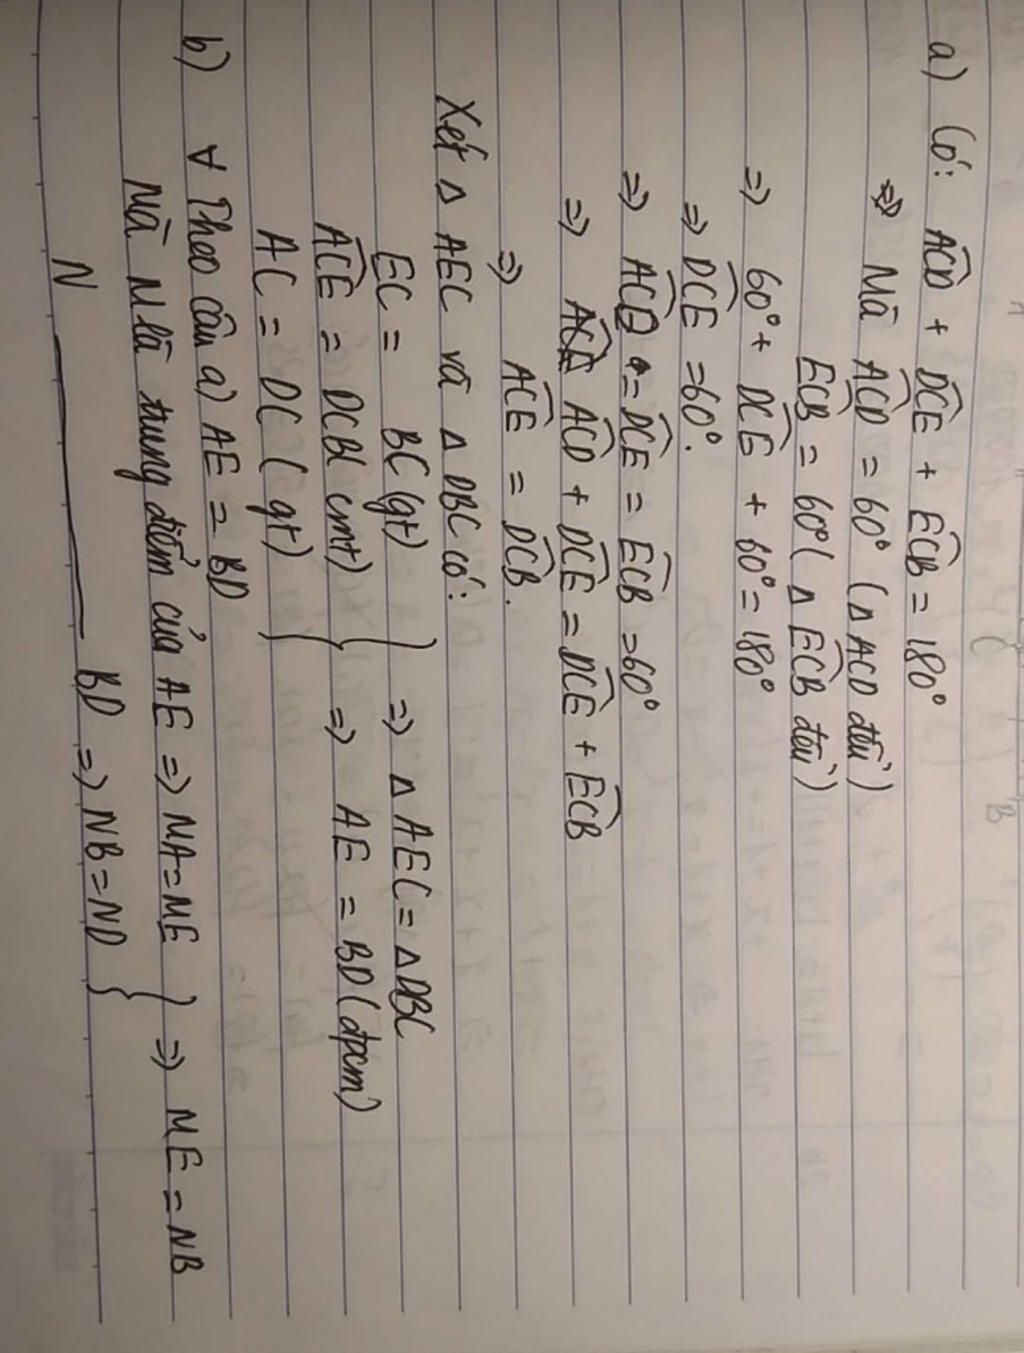 a) Có: ACD + DCE + ECB = 180°
⇒ Mà ACD = 60° (△ ACD đều)
ECB = 60° (△ ECB đều)
⇒ 60° + DCE + 60° = 180°
⇒ DCE = 60°.
⇒ ACD = DCE = ECB = 60°
⇒ ACD + DCE = DCE + ECB
⇒ ACE = DCB.
Xét △ AEC và △ DBC có:
EC = BC (gt)
ACE = DCB (cmt) } ⇒ △ AEC = △ DBC
AC = DC (gt) } ⇒ AE = BD (đpcm)
b) ∀ Theo câu a) AE = BD
Mà M là trung điểm của AE ⇒ MA = ME } ⇒ ME = NB
N ______ BD ⇒ NB = ND }